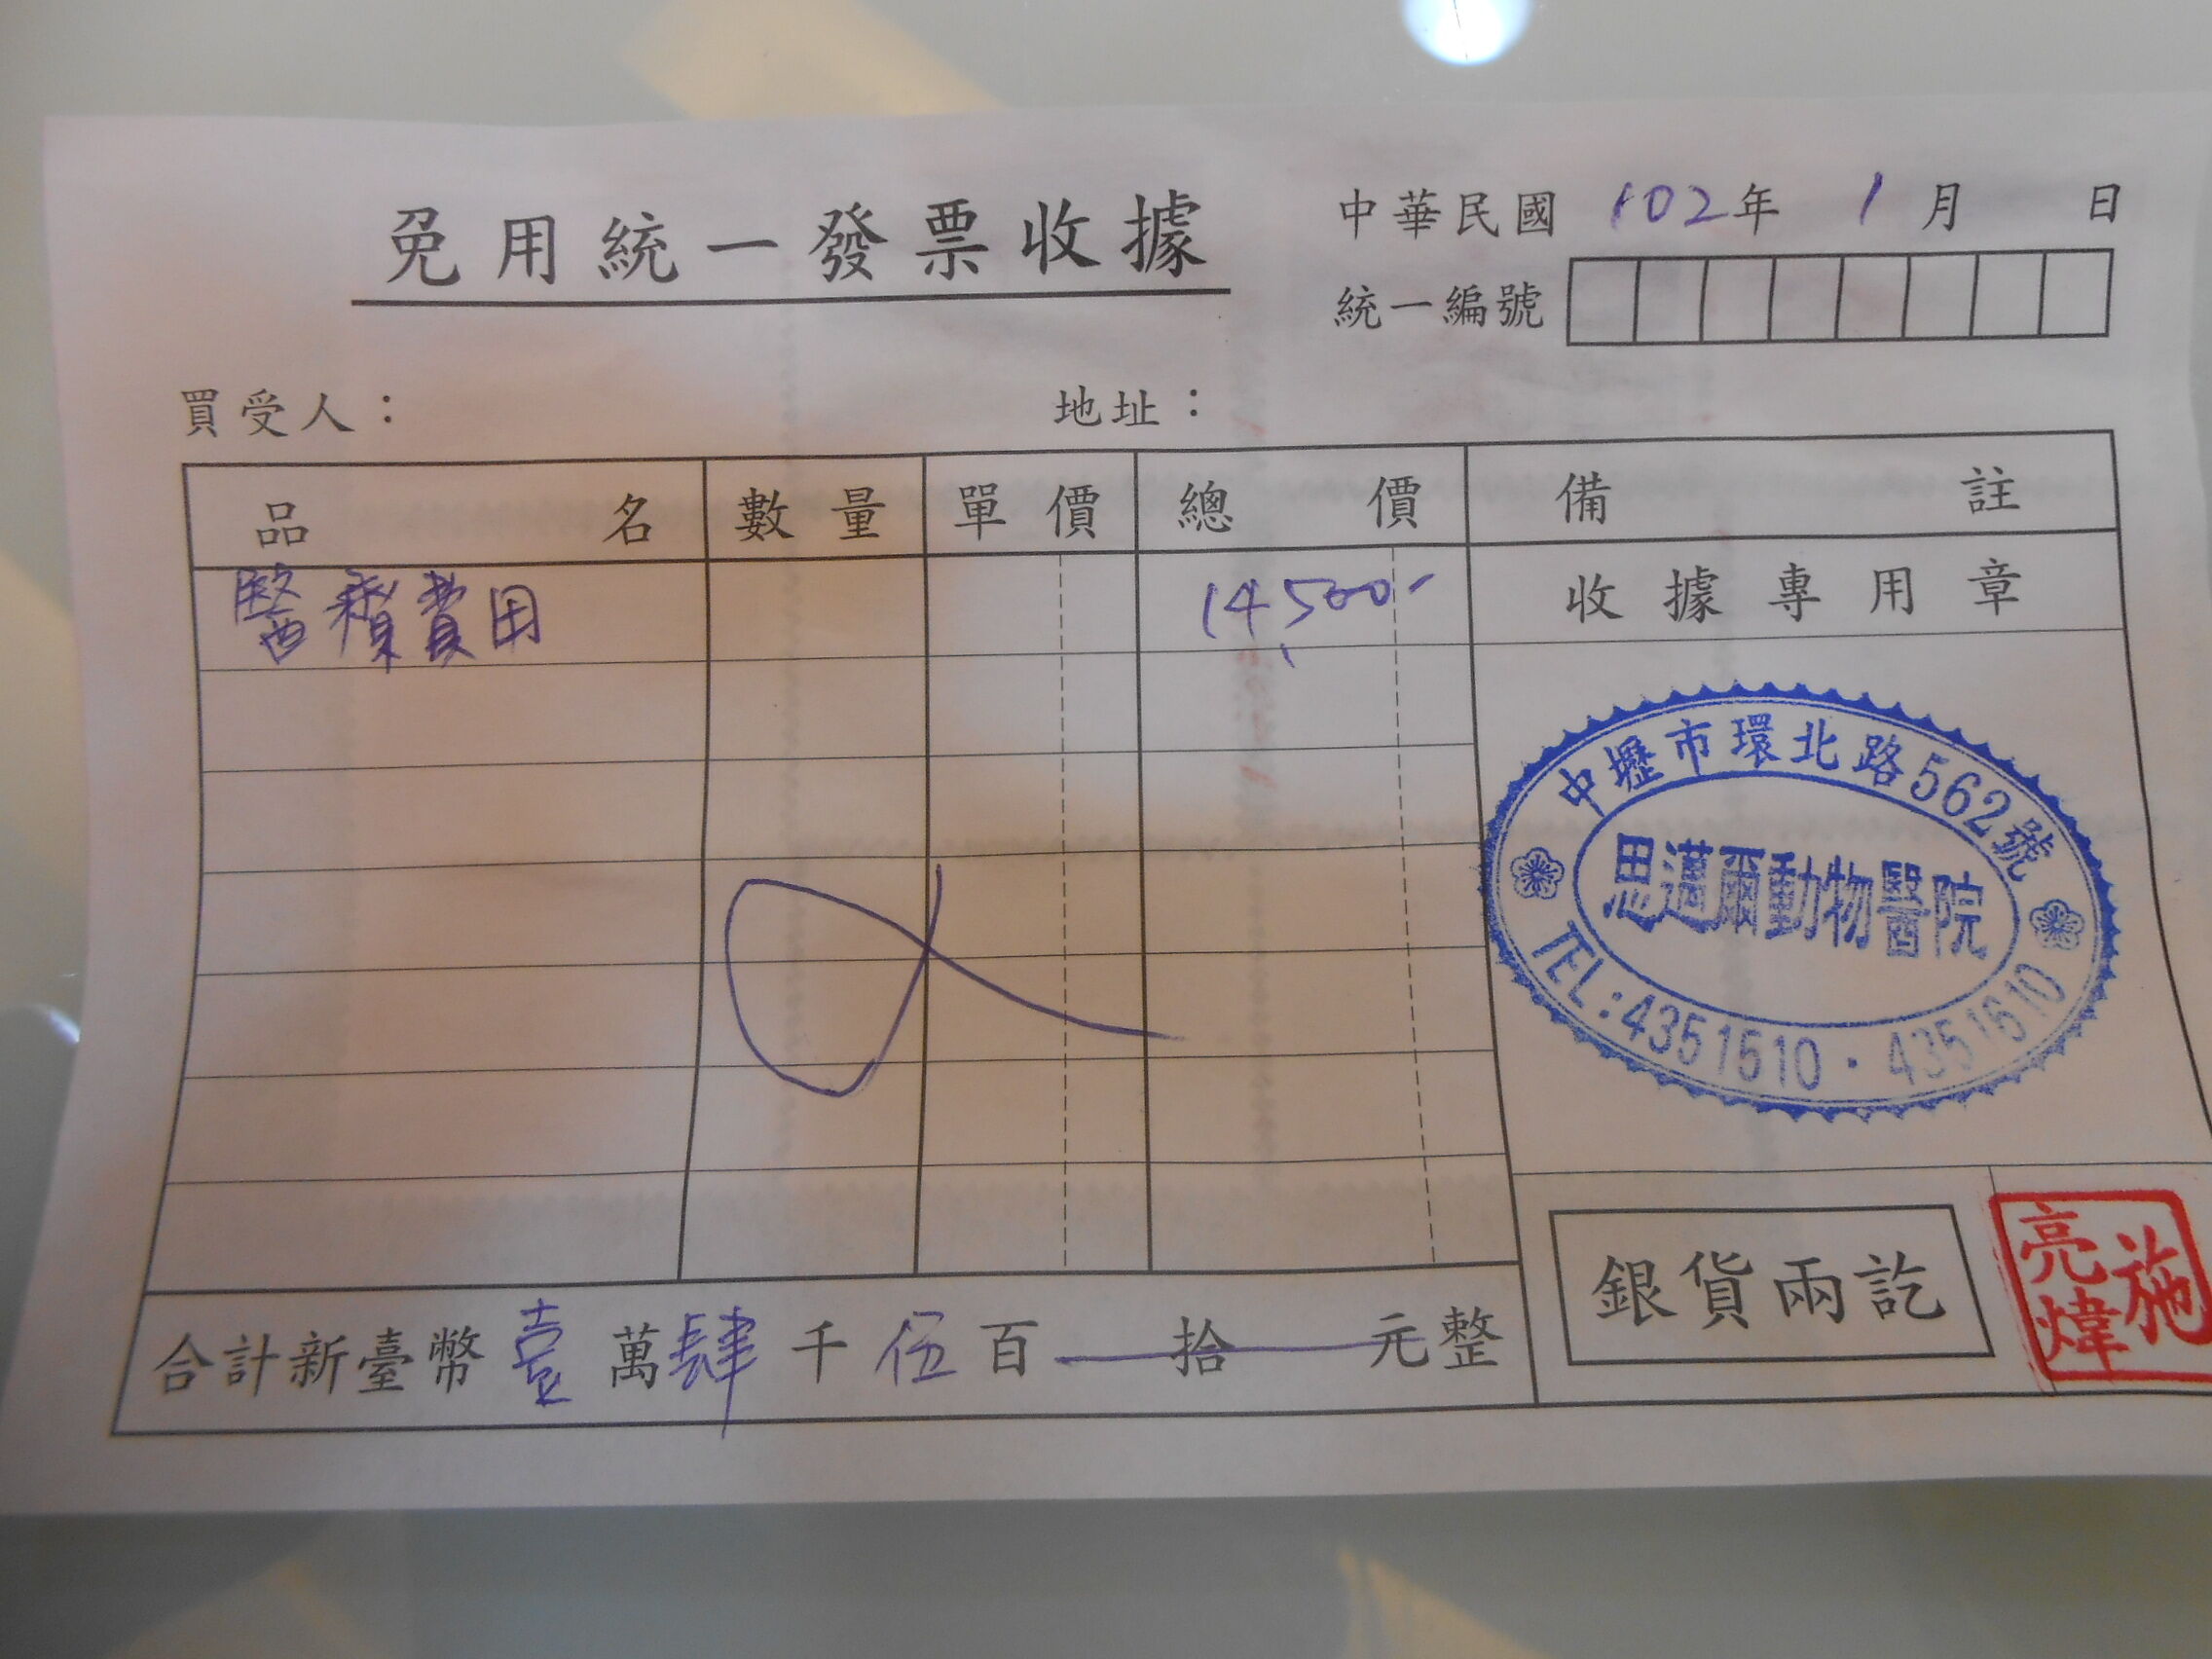 免用統一發票收據
中華民國 102年 1月 日
統一編號
買受人：
地址：
品名 數量 單價 總價 備註
醫療費用 14,500-
收據專用章
中壢市環北路562號
思邁爾動物醫院
TEL:4351510·4351610
合計新臺幣壹萬肆千伍百拾元整
銀貨兩訖
施亮煒